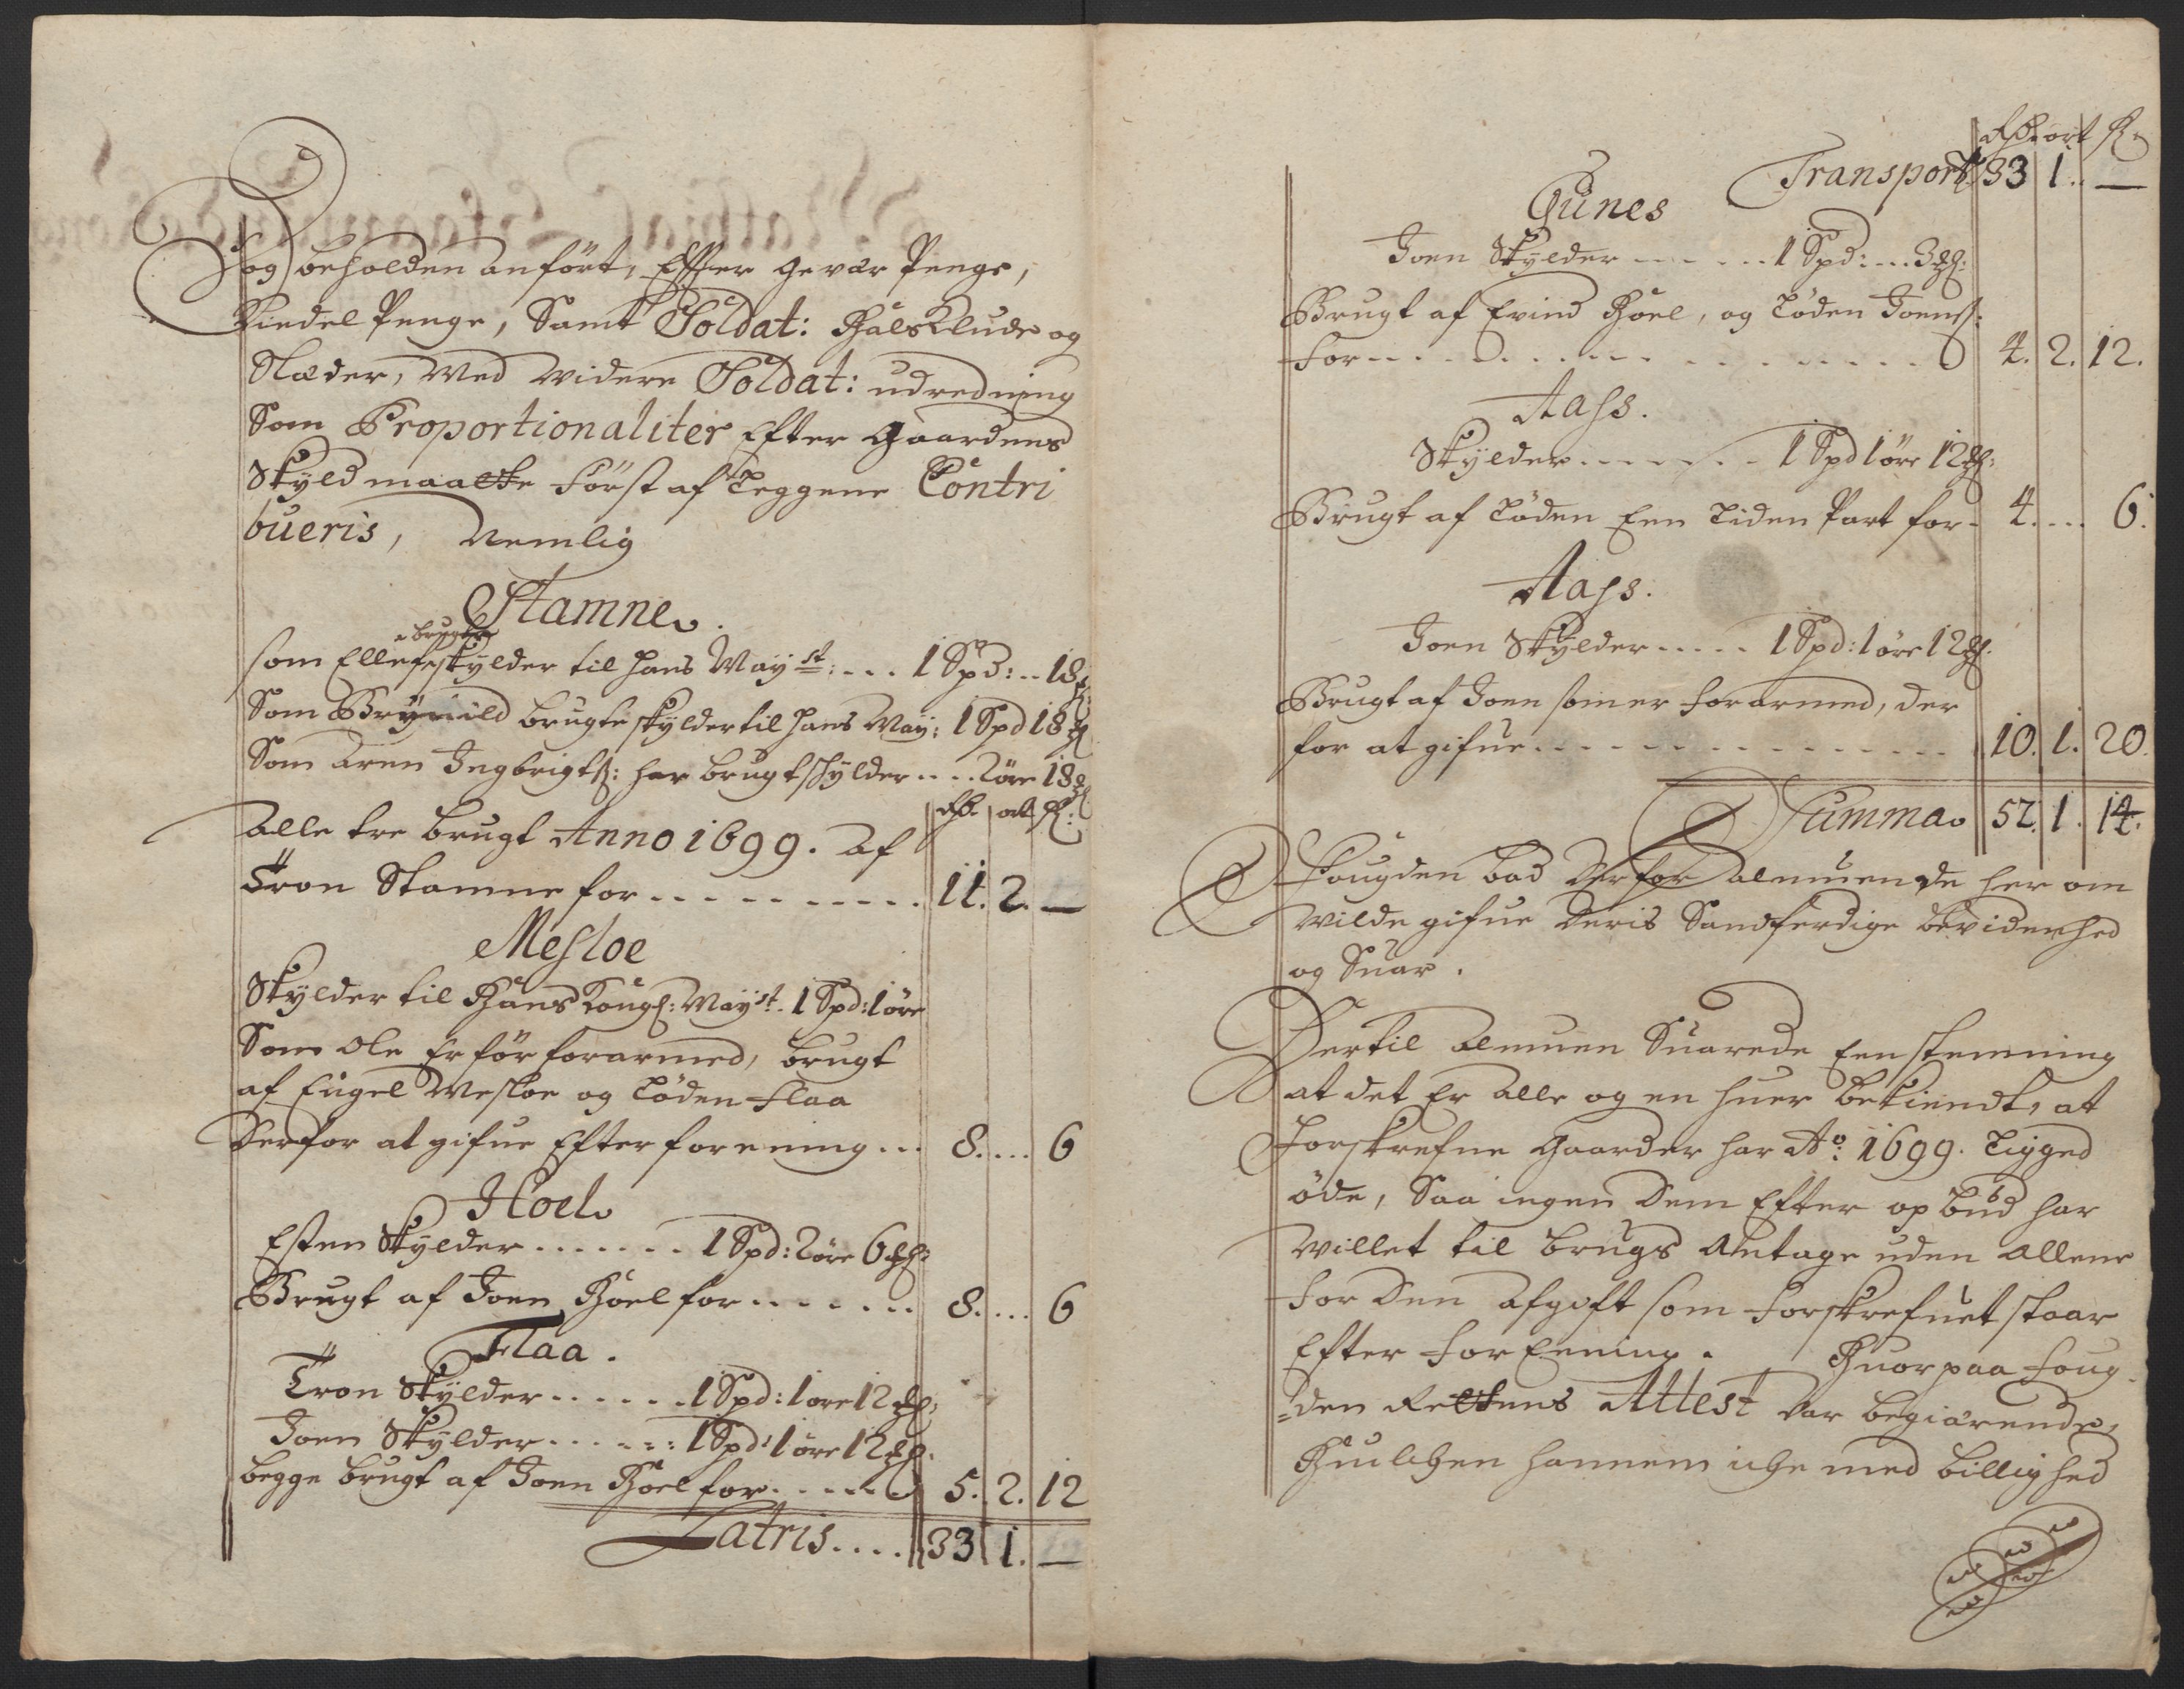 og beholden anført, Efter gevær Penge,
Kiedel Penge, Samt Soldat: Halsklude og
Slæder, Med videre Soldat: udredning
Som Proportionaliter Efter Gaardens
Skyld maatte Först af Leggene Contri
bueris, Nemlig
Stamne.
brugte
som Ellef skylder til Hans May st: ... 1 Spd: .. 18
Som Brynild brugte skylder til Hans May: 1 Spd 18
Som Aren Ingbrigts: har brugt skylder .... 2 öre 18
Rdr ort s:
Alle tre brugt Anno 1699. Af
Tron Stamne for .......... 11. 2. —
Mesloe
Skylder til Hans Kongl: Mayst. 1 Spd: 1 öre
Som Ole Er för forarmed, brugt
af Engel Mesloe og Loden Flaa
Derfor at gifue Efter forening ... 8. ... 6
Hoel
Esten Skylder ....... 1 Spd: 2 öre 6
Brugt af Joen Hoel for ....... 8. ... 6
Flaa.
Tron Skylder ...... 1 Spd: 1 ore 12
Joen Skylder ...... 1 Spd: 1 öre 12
begge brugt af Joen Hoel for ..... 5. 2. 12
Latris .... 33 1. —
Rdr ort s
Transport 33 1 .. —
Gunes
Joen Skylder ...... 1 Spd: ... 3
Brugt af Evind Hoel, og Loden Joens:
For ............ 4. 2. 12.
Aass.
Skylder ....... 1 Spd 1 öre 12
Brugt af Loden Een Liden Part for. 4. ... 6.
Aass.
Joen Skylder ..... 1 Spd: 1 öre 12
Brugt af Joen som er forarmed, der
for at gifue ............ 10. 1. 20.
Summa 52. 1. 14.
Fougden bad Derfor Almuen de her om
Wilde gifue Deris Sandferdige bevidenhed
og Suar.
Dertil Almuen Suarede Eenstemning
at det Er Alle og en huer bekiendt, at
Forskrefne Gaarder har Ao: 1699. Ligged
öde, Saa ingen Dem Efter opbud har
Willet til brugs Antage uden Allene
For Den Afgift som Forskrefuet staar
Efter ForEening. Huorpaa Foug
=den Rettens Attest Var begiærende,
Huilchen hannem iche med billighed